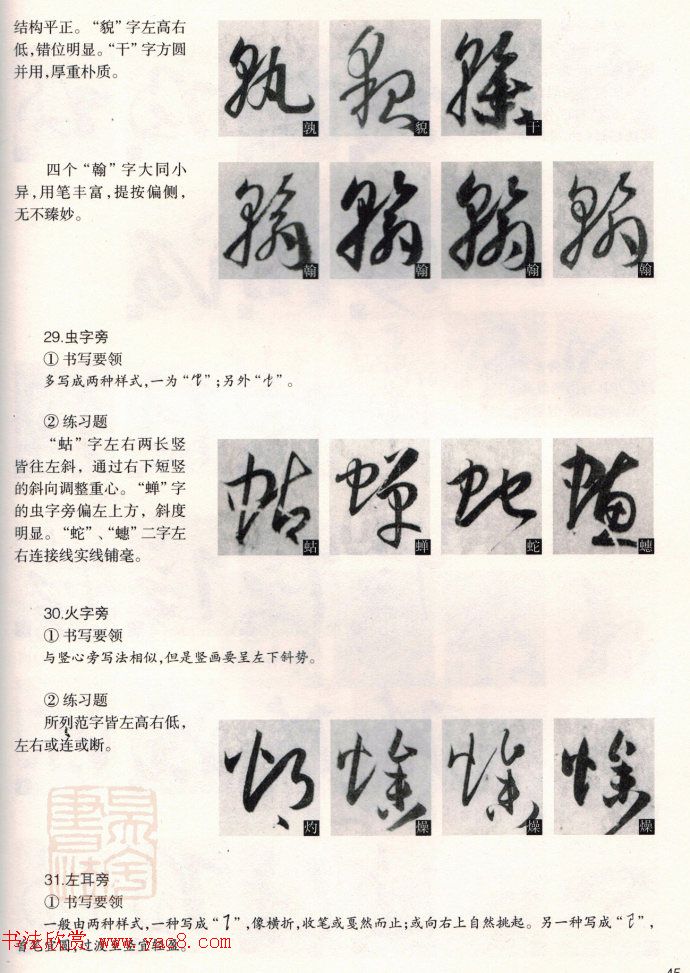 结构平正。“貌”字左高右
低,错位明显。“干”字方圆
并用,厚重朴质。
孰
貌
干
四个“翰”字大同小
异,用笔丰富,提按偏侧,
无不臻妙。
翰
翰
翰
翰
29.虫字旁
① 书写要领
多写成两种样式,一为“”;另外“”。
② 练习题
“蛄”字左右两长竖
皆往左斜，通过右下短竖
的斜向调整重心。“蝉”字
的虫字旁偏左上方，斜度
明显。“蛇”、“蟪”二字左
右连接线实线铺毫。
蛄
蝉
蛇
蟪
30.火字旁
① 书写要领
与竖心旁写法相似,但是竖画要呈左下斜势。
② 练习题
所列范字皆左高右低,
左右或连或断。
灼
燥
燥
燥
31.左耳旁
① 书写要领
一般由两种样式,一种写成“”,像横折,收笔或戛然而止;或向右上自然挑起。另一种写成“”,
书法欣赏 www.yac8.com
45